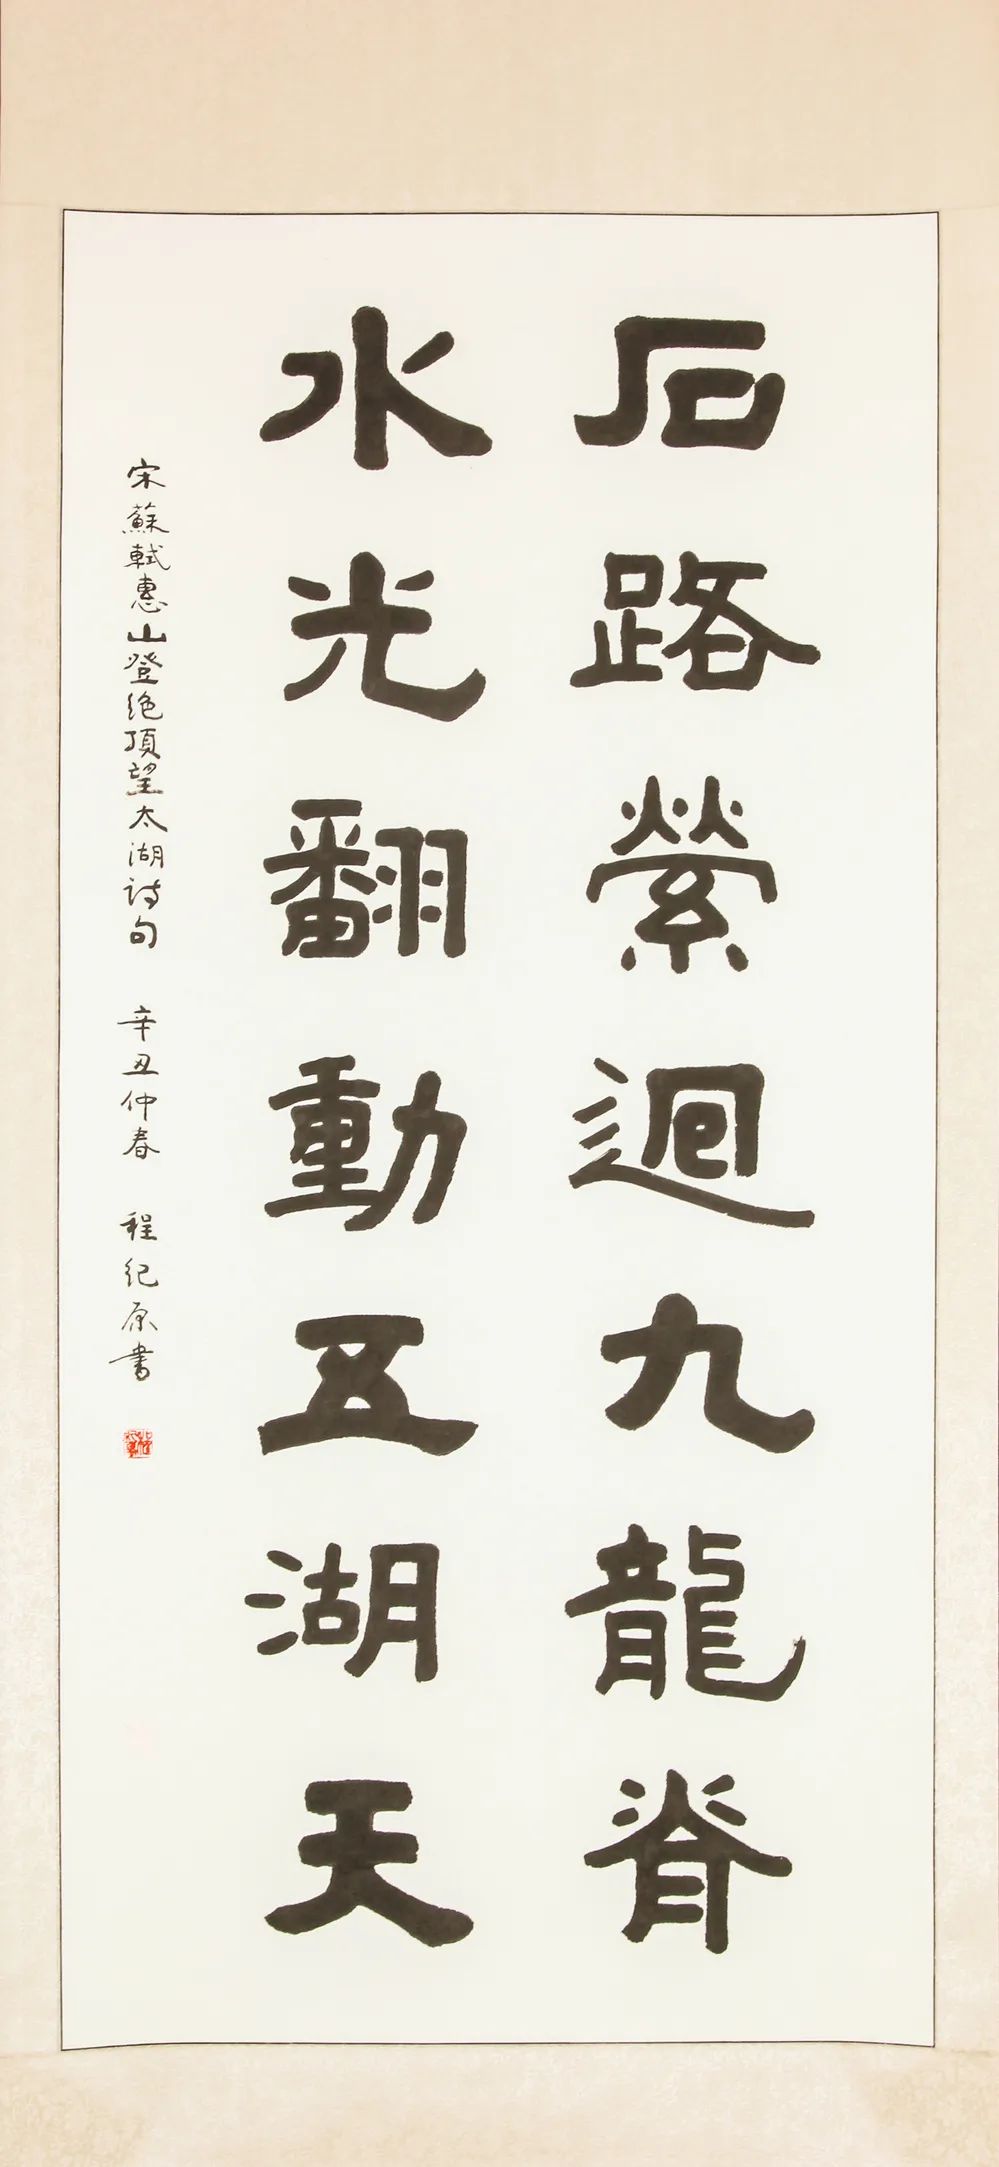 石路縈迴九龍脊
水光翻動五湖天
宋蘇軾惠山登绝頂望太湖詩句 辛丑仲春 程纪原书